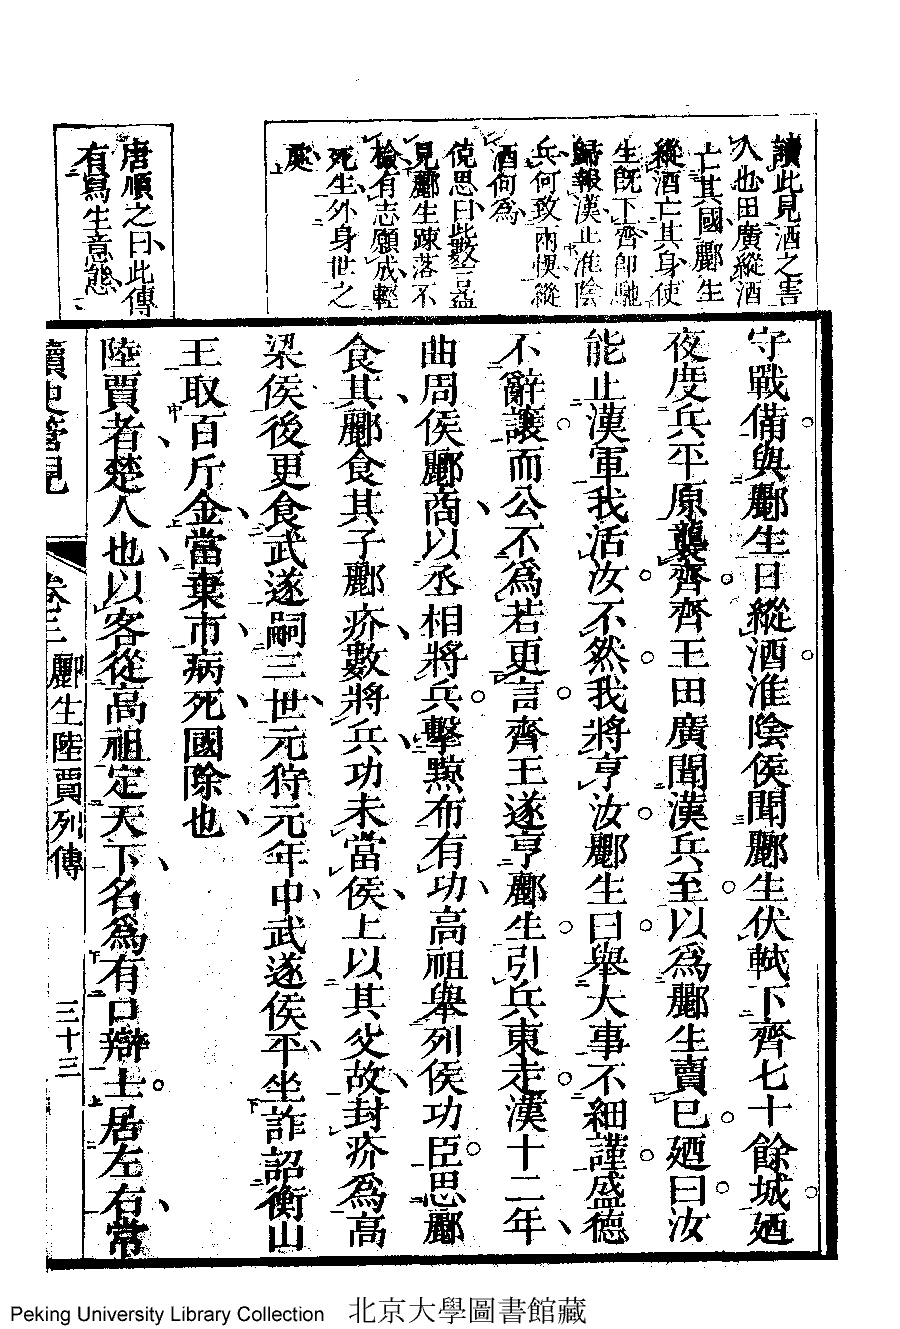 讀此見酒之害
人也田廣縱酒
亡其國酈生
縱酒亡其身使
生旣下齊卽馳
歸報漢止淮陰
兵何致兩悞縱
酒何爲
倪思曰此數言益
見酈生踈落不
檢有志願成輕
死生外身世之
唐順之曰此傳
有寫生意態
守戰備與酈生日縱酒淮陰侯聞酈生伏軾下齊七十餘城廼
夜度兵平原襲齊齊王田廣聞漢兵至以爲酈生賣已廼曰汝
能止漢軍我活汝不然我將亨汝酈生曰舉大事不細謹盛德
不辭讓而公不爲若更言齊王遂亨酈生引兵東走漢十二年
曲周侯酈商以丞相將兵擊黥布有功高祖舉列侯功臣思酈
食其酈食其子酈疥數將兵功未當侯上以其父故封疥爲高
梁侯後更食武遂嗣三世元狩元年中武遂侯平坐詐詔衡山
王取百斤金當棄市病死國除也
陸賈者楚人也以客從高祖定天下名爲有口辯士居左右常
讀史管見
卷三
酈生陸賈列傳
三十三
Peking University Library Collection 北京大學圖書館藏